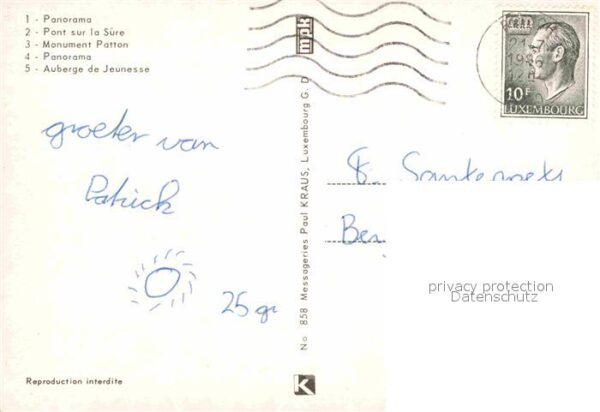 1 - Panorama
2 - Pont sur la Sûre
3 - Monument Patton
4 - Panorama
5 - Auberge de Jeunesse
groeten van
Patrick
25 gr
Reproduction interdite
No 858 Messageries Paul KRAUS, Luxembourg G. D.
mpk
K
10F
LUXEMBOURG
privacy protection
Datenschutz